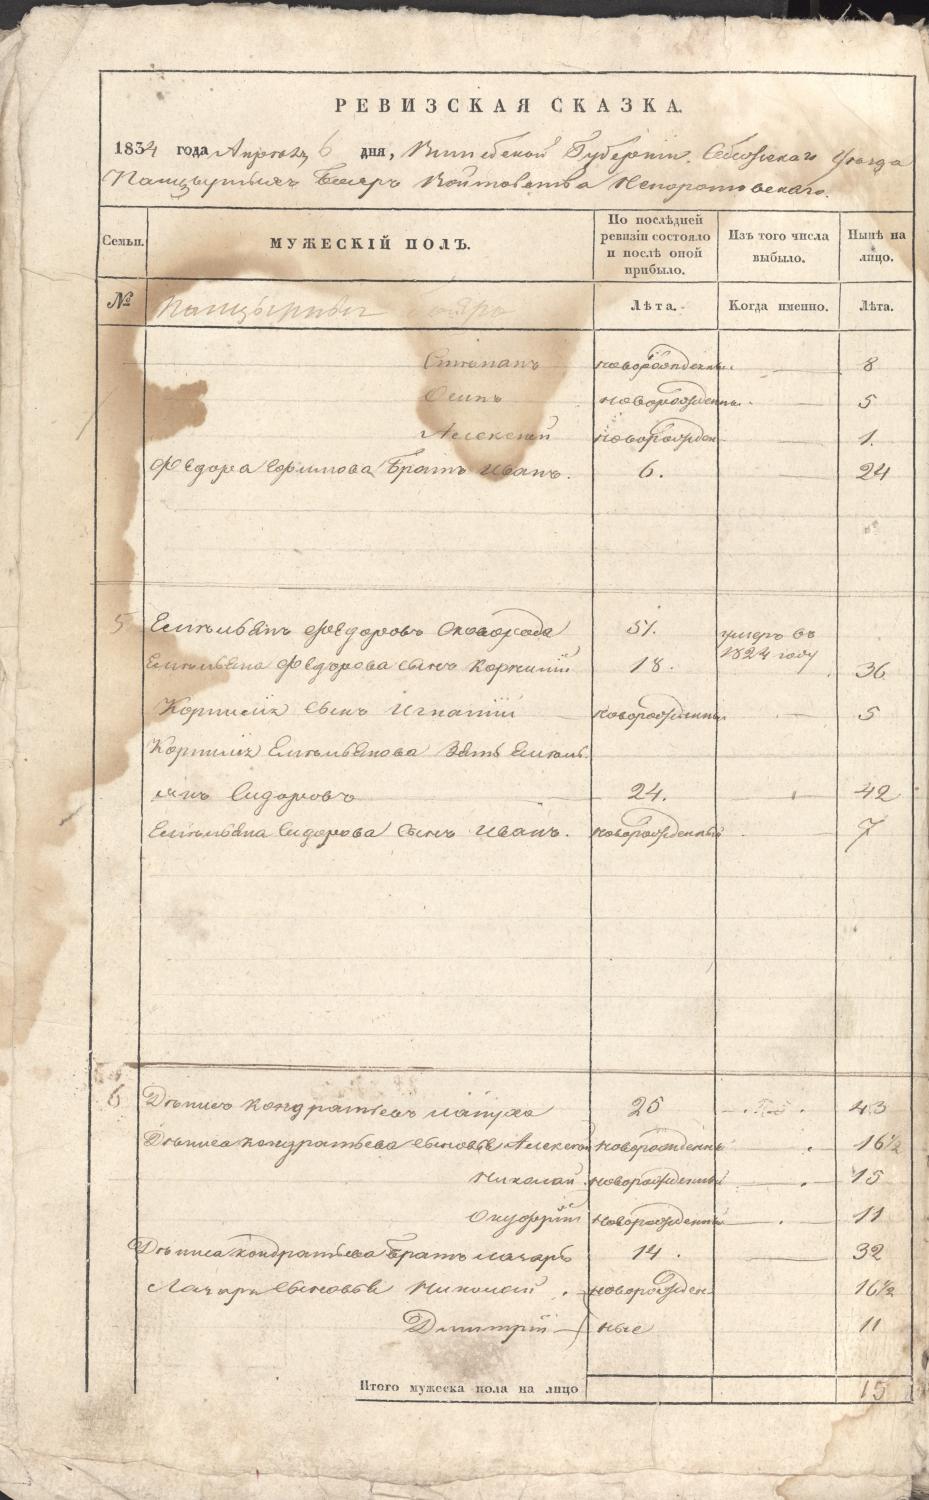 РЕВИЗСКАЯ СКАЗКА.
1834 года Апреля 6 дня, Витебской Губернии. Себежскаго Уезда
Панцырныхъ Бояръ Войтовства Непоротовскаго.
Семьи. МУЖЕСКІЙ ПОЛЪ. По послѣдней ревизіи состояло и послѣ оной прибыло. Изъ того числа выбыло. Нынѣ на лицо.
№ Панцырные Бояре Лѣта. Когда именно. Лѣта.
Степанъ новорожденный. 8
Осипъ новорожденнъ. 5
Алексей новорожден 1.
Федора Ефимова Братъ Иванъ. 6. 24
5 Емельянъ Федоровъ Сковорода 51. умеръ въ 1824 году
Емельяна Федорова сынъ Корнилій 18. 36
Корнилія сынъ Игнатій новорожденный 5
Корнилія Емельянова Зять Емель
янъ Сидоровъ 24. 42
Емельяна Сидорова сынъ Иванъ. новорожденный 7
6 Денисъ Кондратьевъ Лапуха 25 43
Дениса Кондратьева сыновья Алексей новорожденны 16½
Николай новорожденный 15
Онуфрій новорожденный 11
Дениса Кондратьева Братъ Лазарь 14. 32
Лазаря сыновья Николай новорожден 16½
Дмитрій ные 11
Итого мужеска пола на лицо 15